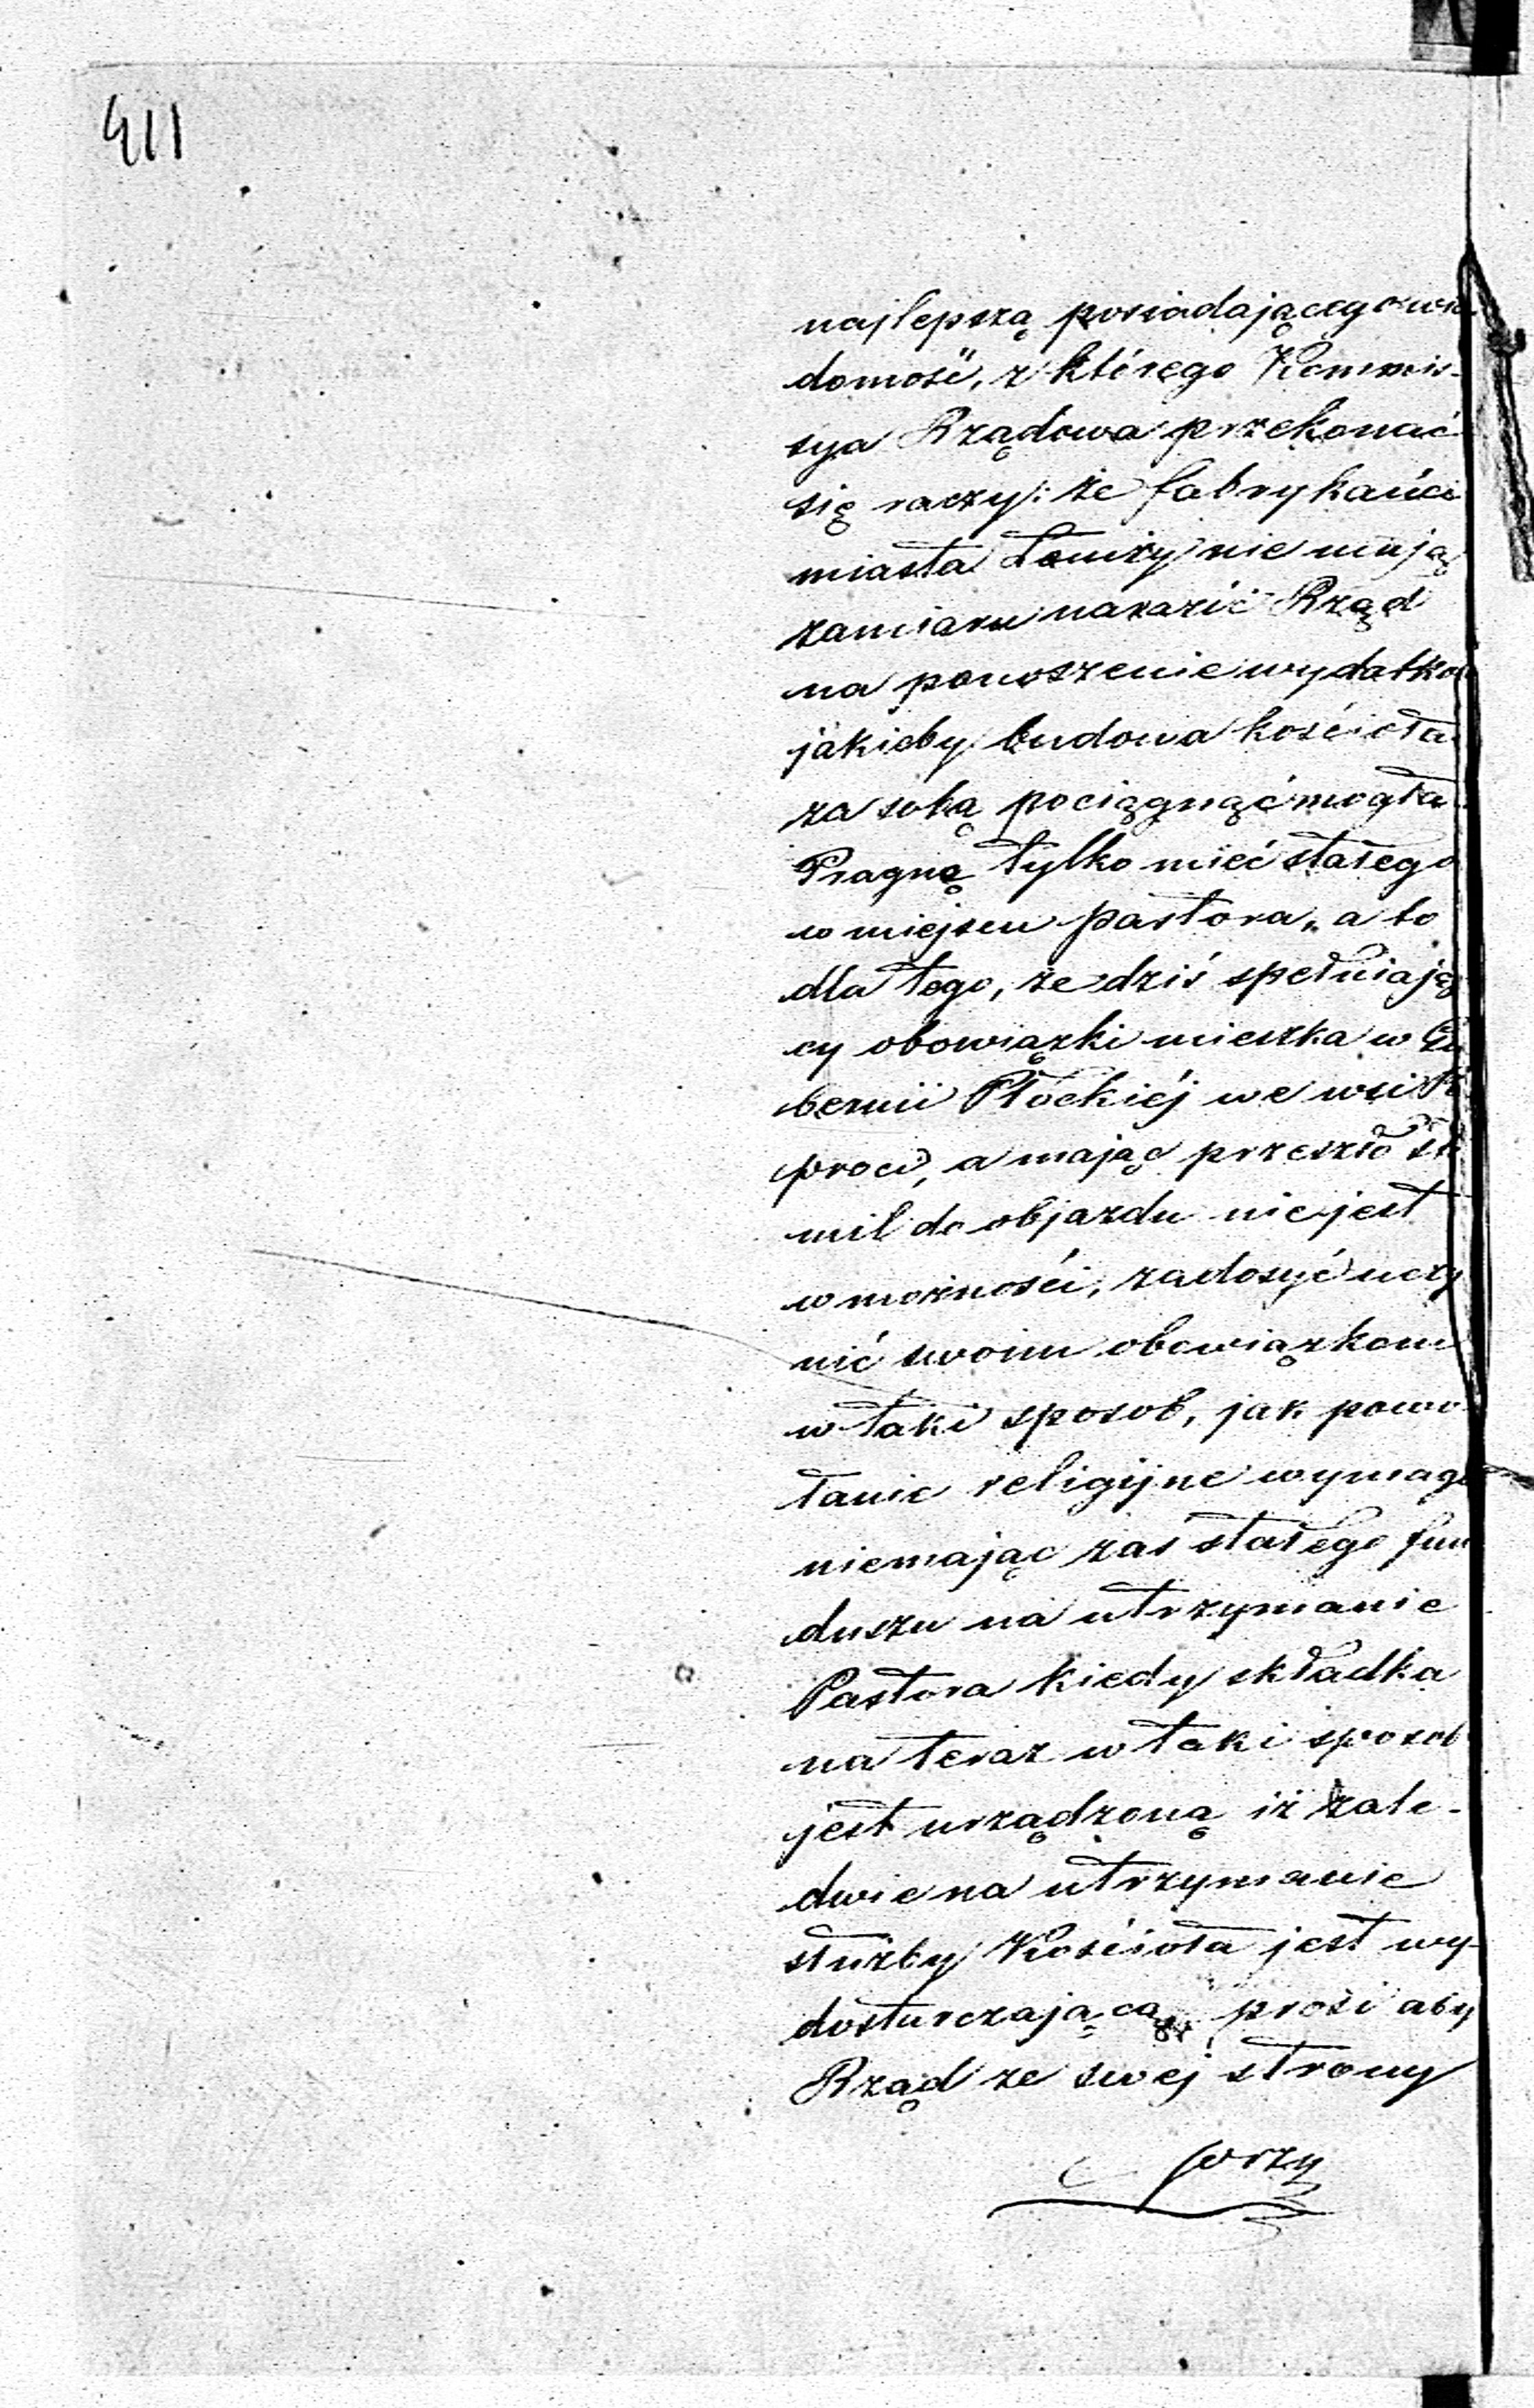 411
najlepszą posiadającego wia
domość, z którego Kommis-
sya Rządowa przekonać
się raczy: że fabrykańci
miasta Łomży nie mają
zamiaru narazić Rząd
na ponoszenie wydatko
jakieby budowa kościoła
za sobą pociągnąć mogła.
Pragną tylko mieć stałego
w miejscu pastora, a to
dla tego, że dziś spełniają
cy obowiązki mieszka w Gu
bernii Płockiéj we wsi
proci, a mając przeszło
mil do objazdu nie jest
w możności, zadosyć uczy
nić swoim obowiązkom
w taki sposob, jak powo
łanie religijne wymaga
niemając zaś stałego fun
duszu na utrzymanie
Pastora kiedy składka
na teraz w taki sposob
jest urządzoną iż zale-
dwie na utrzymanie
służby Kościoła jest wy-
dosturczającą, prosi aby
Rząd ze swej strony
przy